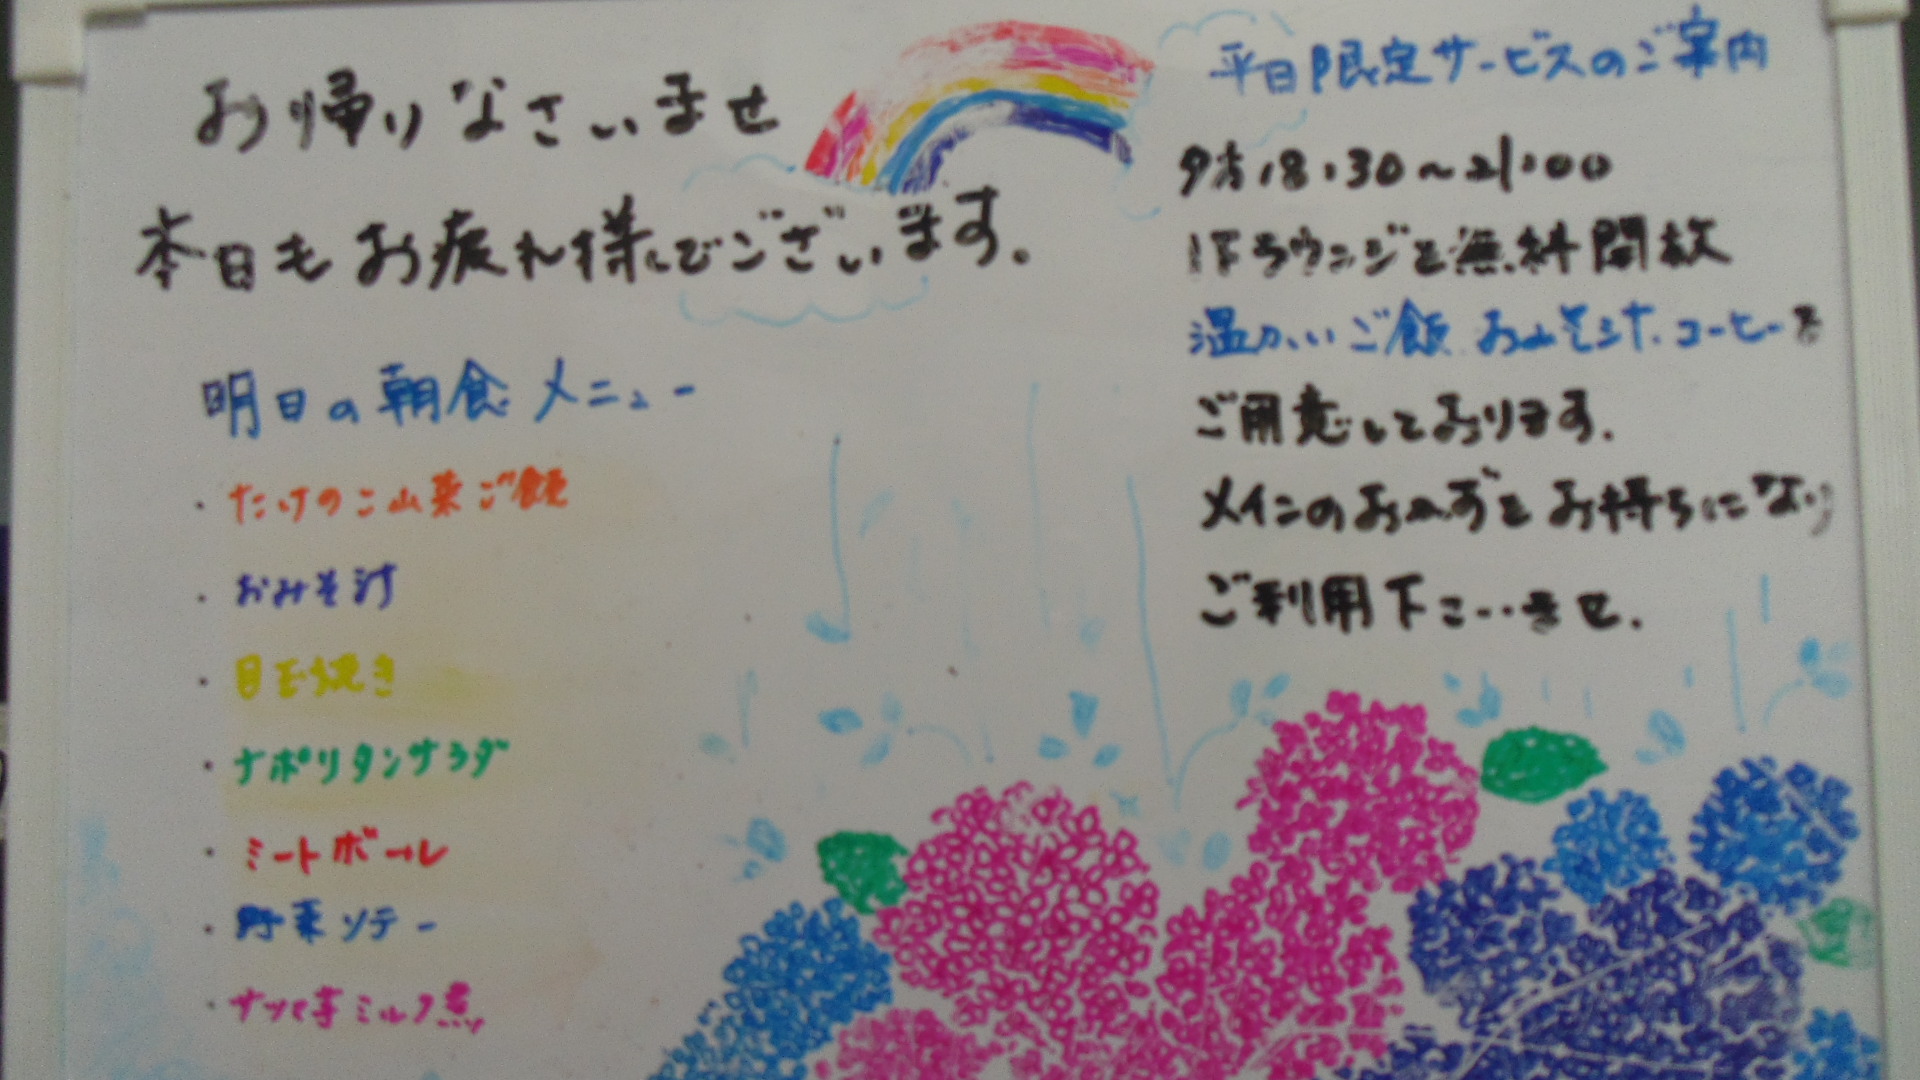 お帰りなさいませ
本日もお疲れ様でございます。
明日の朝食メニュー
・たけのこ山菜ご飯
・おみそ汁
・目玉焼き
・ナポリタンサラダ
・ミートボール
・野菜ソテー
・さつま芋ミルク煮
平日限定サービスのご案内
夕方18:30～21:00
1Fラウンジを無料開放
温かいご飯.おみそ汁.コーヒーを
ご用意しております.
メインのおかずをお持ちになり
ご利用下さいませ.